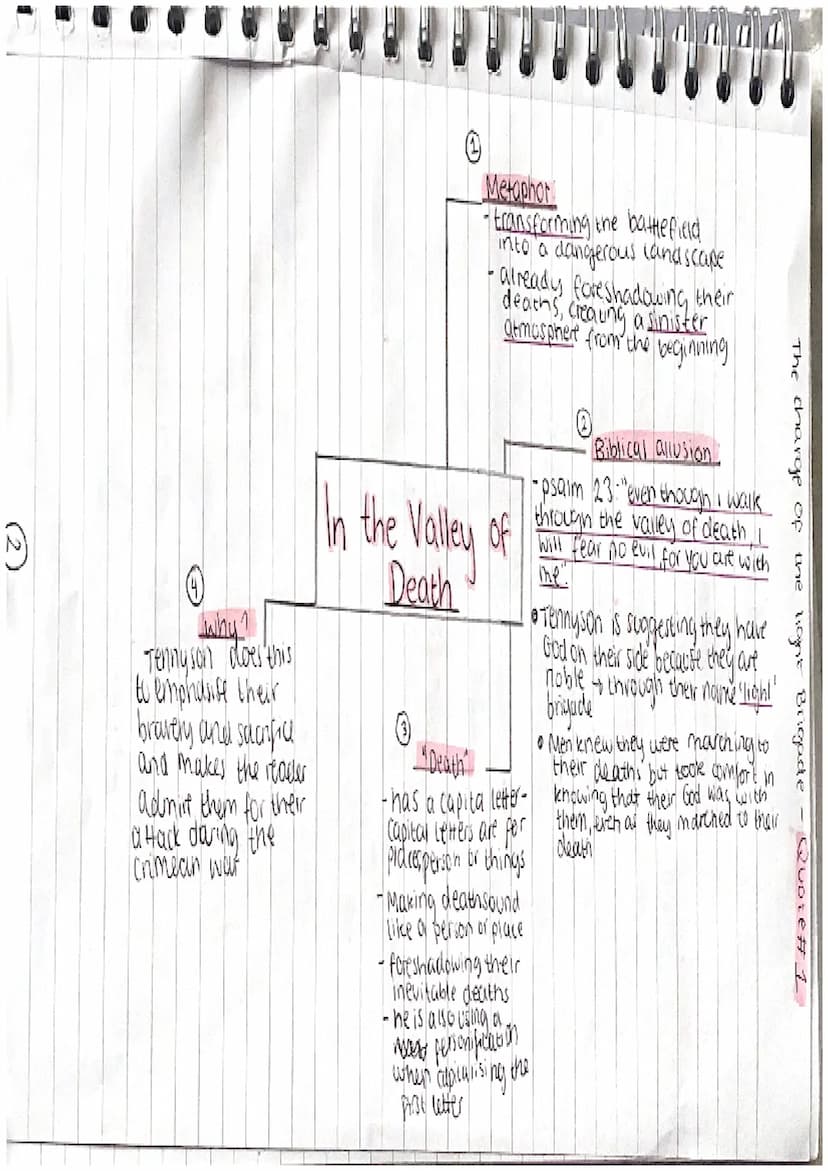 The charge of the light Brigade - Quote #1
①
Metaphor
- transforming the battlefield
into a dangerous landscape
- already foreshadowing their
deaths, creating a sinister
atmosphere from the beginning
②
Biblical allusion
- psalm 23: "even though i walk
through the valley of death, i
will fear no evil, for you are with
me".
• Tennyson is suggesting they have
God on their side because they are
noble → through their name 'light'
brigade
• Men knew they were marching to
their deaths but took comfort in
knowing that their God was with
them, even as they marched to their
death
In the Valley of
Death
③
"Death"
- has a capital letter-
capital letters are for
places, person or things
- Making death sound
like a person or place
- foreshadowing their
inevitable deaths
- he is also using a
personification
when capitalising the
first letter
④
Why?
Tennyson does this
to emphasise their
bravery and sacrifice
and makes the reader
admire them for their
attack during the
crimean war
(2)